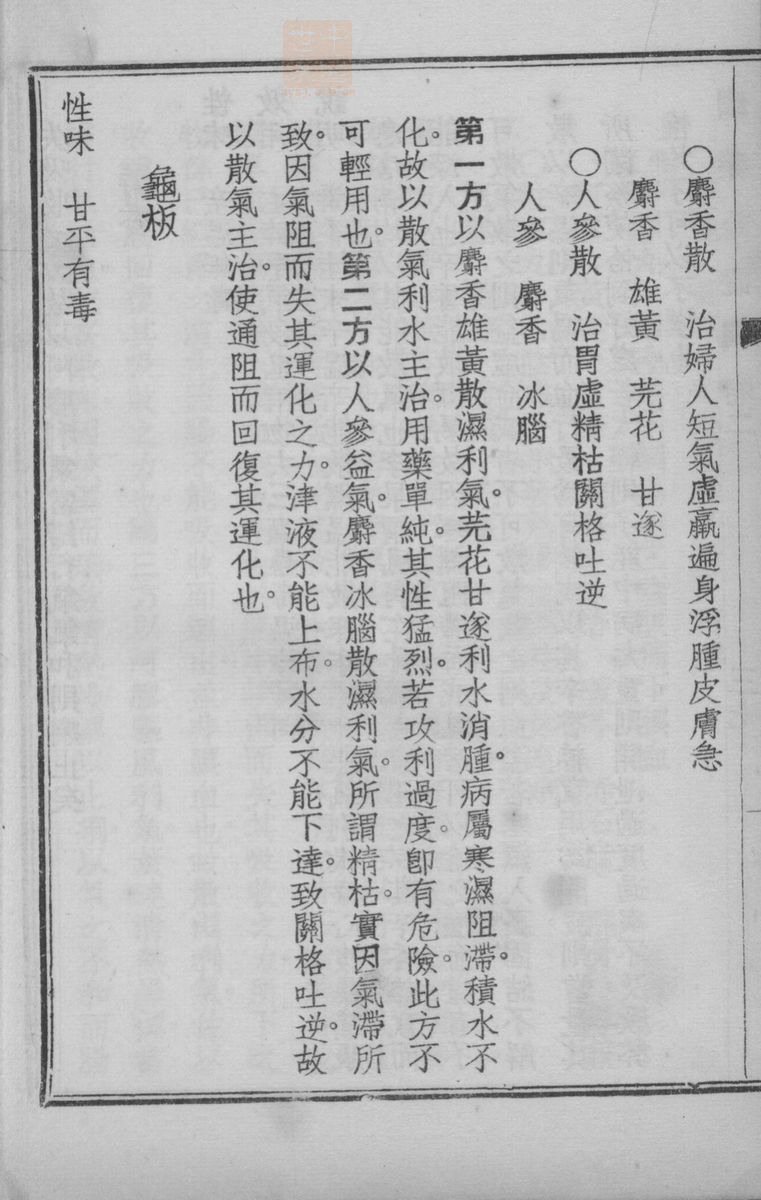 ○麝香散　治婦人短氣虛羸遍身浮腫皮膚急
麝香　雄黃　芫花　甘遂
○人參散　治胃虛精枯關格吐逆
人參　麝香　冰腦
第一方以麝香雄黃散濕利氣。芫花甘遂利水消腫。病屬寒濕阻滯。積水不
化。故以散氣利水主治。用藥單純。其性猛烈。若攻利過度。卽有危險。此方不
可輕用也。第二方以人參益氣。麝香冰腦散濕利氣。所謂精枯。實因氣滯所
致。因氣阻而失其運化之力。津液不能上布。水分不能下達。致關格吐逆。故
以散氣主治。使通阻而回復其運化也。
龜板
性味　甘平有毒